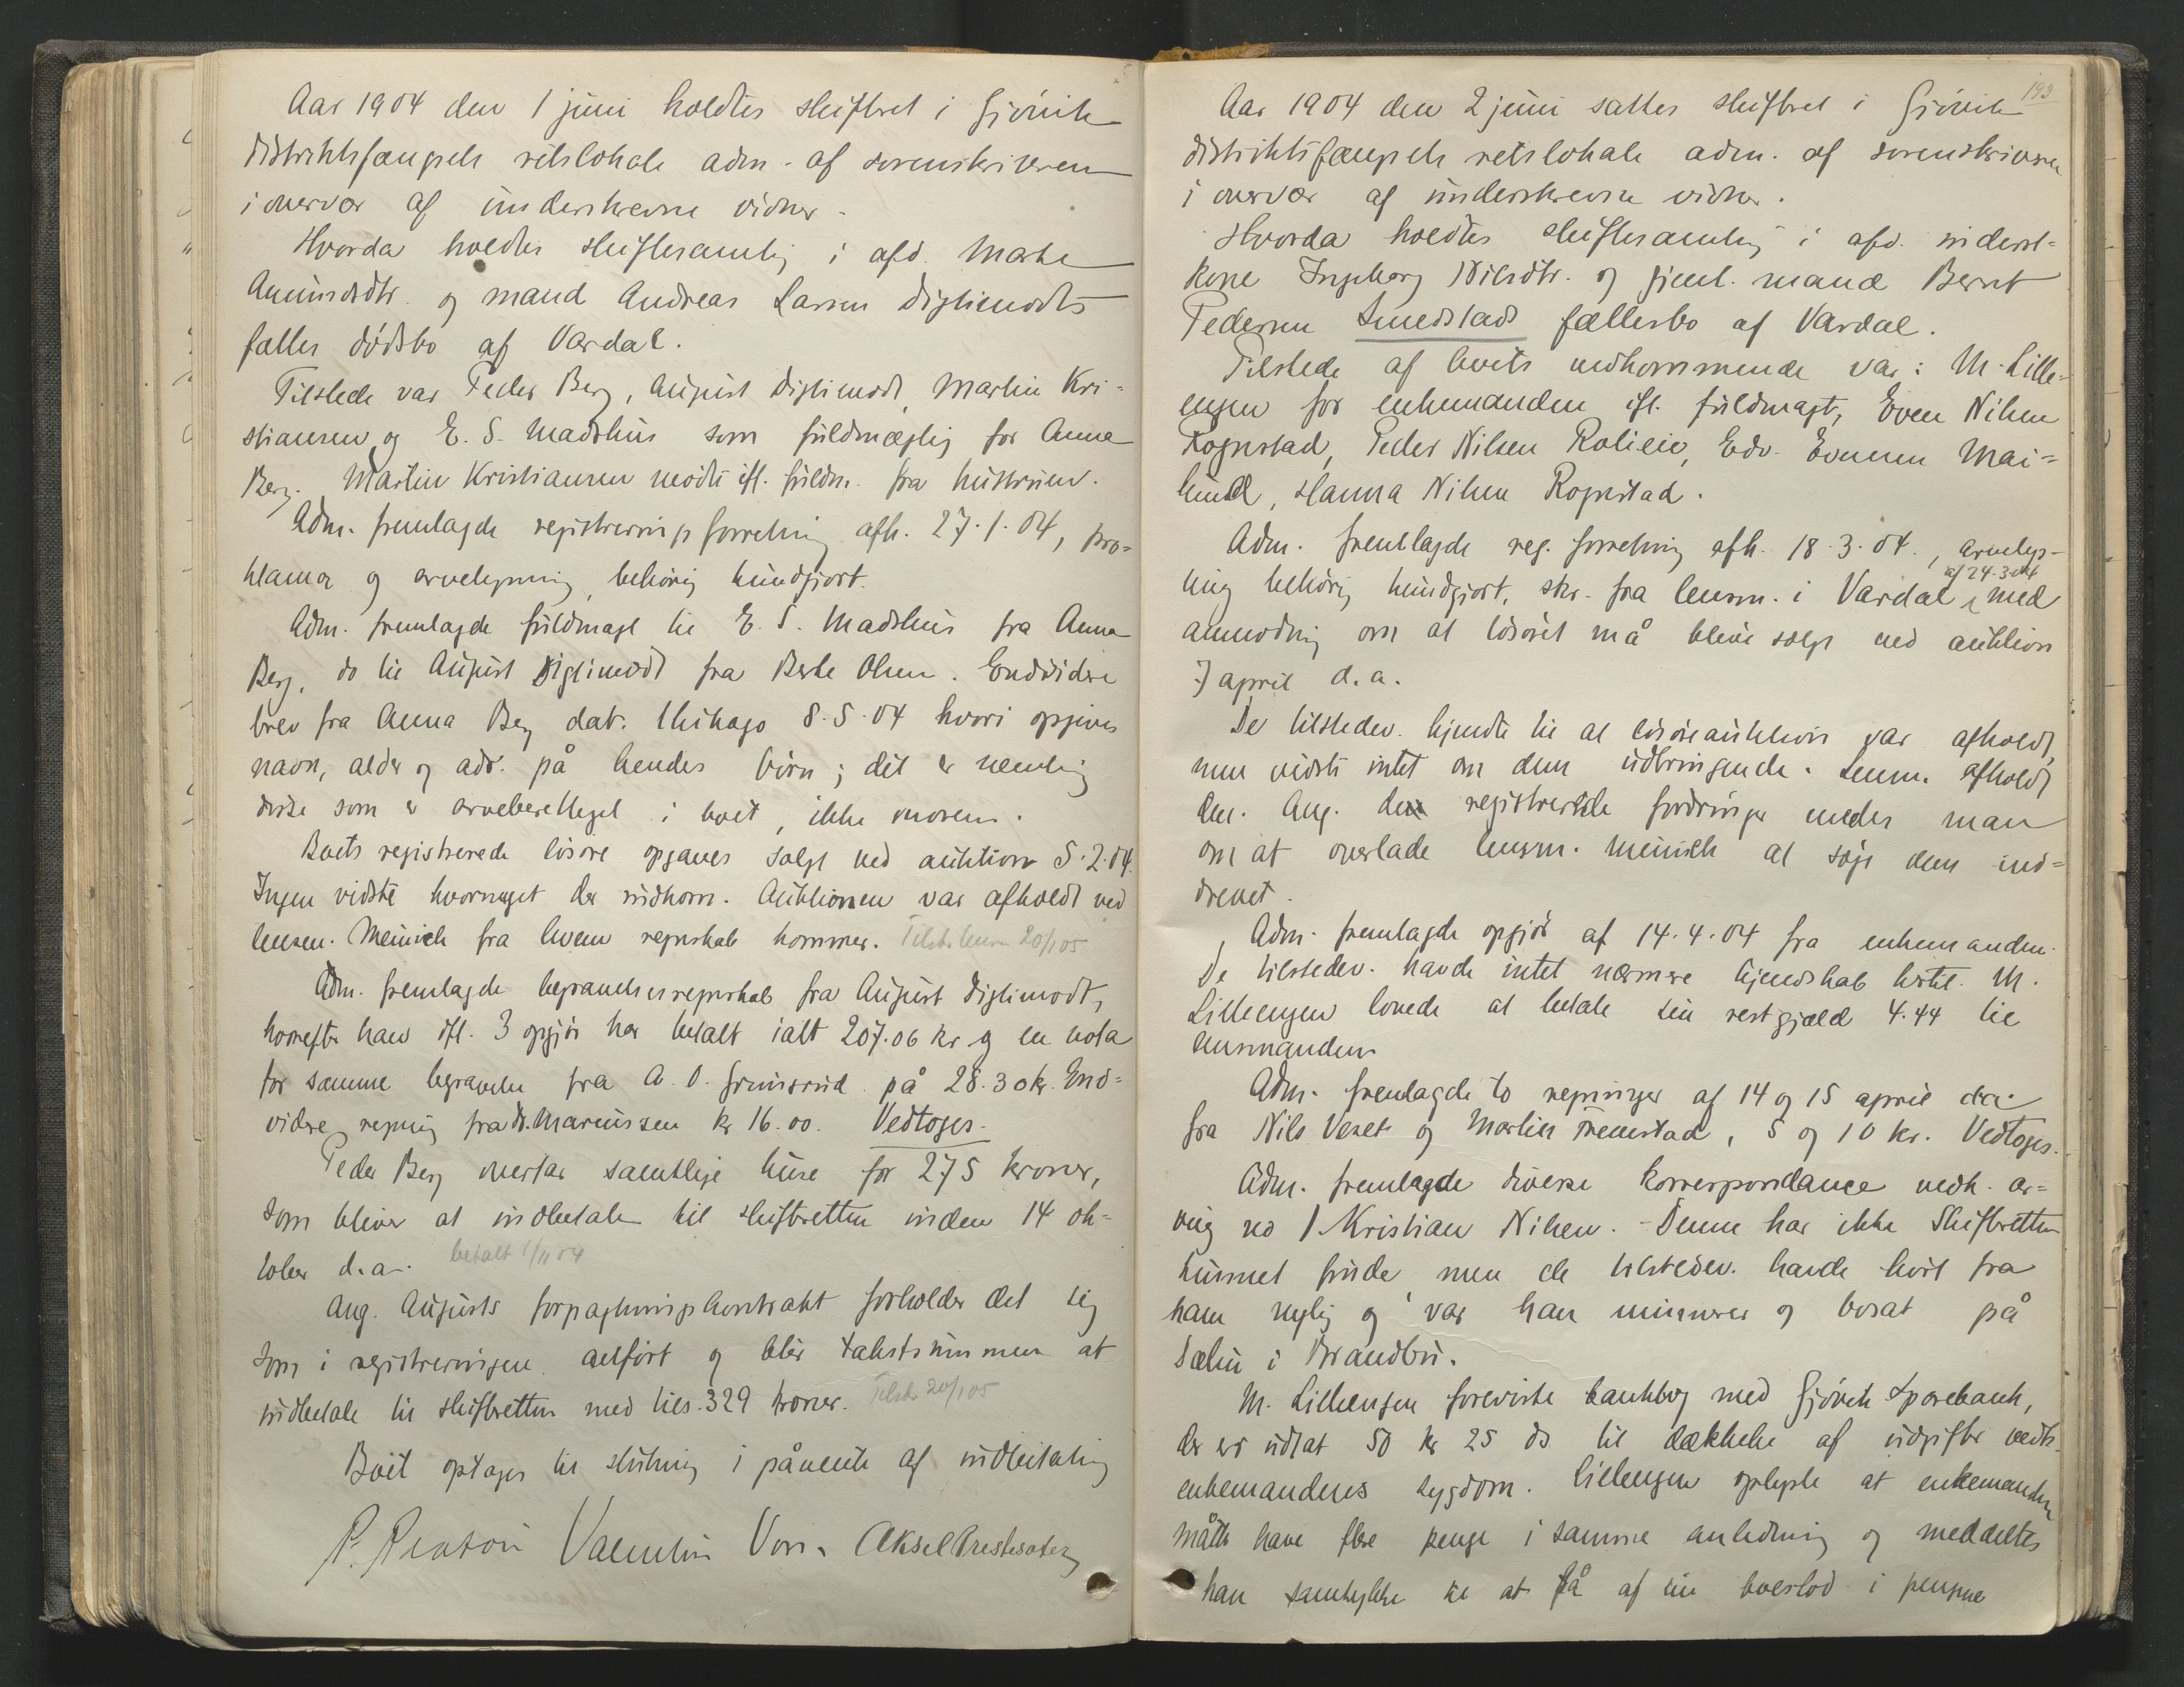 Aar 1904 den 1 juni holdtes skifteret i Gjövik
distriktsfængsels retslokale adm. af sorenskriveren
i overvær af underskrevne vidner.
Hvorda holdtes skiftesamling i afd. Marte
Amundsdtr. og mand Andreas Larsen Diglimodts
fælles dödsbo af Vardal.
Tilstede var Peder Berg, August Diglimodt, Martin Kri=
stiansen og E. S. Madshus som fuldmægtig for Anna
Berg. Martin Kristiansen mödte ifl. fuldm. fra hustruen.
Adm. fremlagde registreringsforretning afh. 27.1.04, pro=
klama og arvelysning behörig kundgjort.
Adm. fremlagde fuldmagt til E. S. Madshus fra Anna
Berg, do til August Diglimodt fra Berte Olsen. Endvidere
brev fra Anna Berg dat. Chikago 8.5.04 hvori opgives
navn, alder og adr. på hendes börn; det er nemlig
disse som er arveberettiget i boet, ikke moren.
Boets registrerede lösöre opgaves solgt ved auktion 5.2.04.
Ingen vidste hvormeget der indkom. Auktionen var afholdt ved
lensm. Meinich fra hvem regnskab kommer. 20/1 05
Adm. fremlagde begravelsesregnskab fra August Diglimodt,
hvorefter han ifl. 3 opgjör har betalt ialt 207.06 kr og en nota
for samme begravelse fra A. O. Grimsrud på 28.30 kr. End=
videre regning fra dr. Mariussen kr 16.00. Vedtoges.
Peder Berg overtar samtlige huse for 275 kroner,
som bliver at indbetale til skifteretten inden 14 ok=
tober d.a. betalt 1/11 04
Ang. Augusts forpagtningskontrakt forholder det sig
som i registreringen anfört og blir takstsummen at
indbetale til skifteretten med tils. 329 kroner. 20/1 05
Boet optages til slutning i påvente af indbetaling
Valentin Aksel Præstesæter
193
Aar 1904 den 2 juni sattes skifteret i Gjövik
distriktsfængsels retslokale adm. af sorenskriveren
i overvær af underskrevne vidner.
Hvorda holdtes skiftesamling i afd. inderst=
kone Ingeborg Nilsdtr. og gjenl. mand Bernt
Pedersen Smedstads fællesbo af Vardal.
Tilstede af boets vedkommende var: M. Lille=
engen for enkemanden ifl. fuldmagt, Even Nilsen
Rognstad, Peder Nilsen Roliein, Edv. Evensen Mai=
lund, Hanna Nilsen Rognstad.
Adm. fremlagde reg. forretning afh. 18.3.04., arvelys-
ning behörig kundgjort, skr. fra lensm. i Vardal af 24.3.04 med
anmodning om at lösöret må blive solgt ved auktion
7 april d.a.
De tilstedev. kjendte til at lösöreauktion var afholdt,
men vidste intet om dens udbringende. Lensm. afholdt
den. Ang. de registrerede fordringer enedes man
om at overlade lensm. Meinich at söge dem ind=
drevet.
Adm. fremlagde opgjör af 14.4.04 fra enkemanden.
De tilstedev. havde intet nærmere kjendskab hertil. M.
Lilleengen lovede at betale sin restgjæld 4.44 til
lensmanden.
Adm. fremlagde to regninger af 14 og 15 april d.a.
fra Nils Veset og Martin Tremstad, 5 og 10 kr. Vedtoges.
Adm. fremlagde diverse korrespondance vedk. ar=
ving no 1 Kristian Nilsen. - Denne har ikke skifteretten
kunnet finde men de tilstedev. havde hört fra
ham nylig og var han minerer og bosat på
Sælin i Brandbu.
M. Lilleengen foreviste bankbog med Gjövik Sparebank,
der er udtat 50 kr 25 ds til dækkelse af udgifter vedk.
enkemandens sygdom. Lilleengen oplyste at enkemanden
måtte have flere penge i samme anledning og meddeltes
han samtykke til at få af sin boeslod i pengene